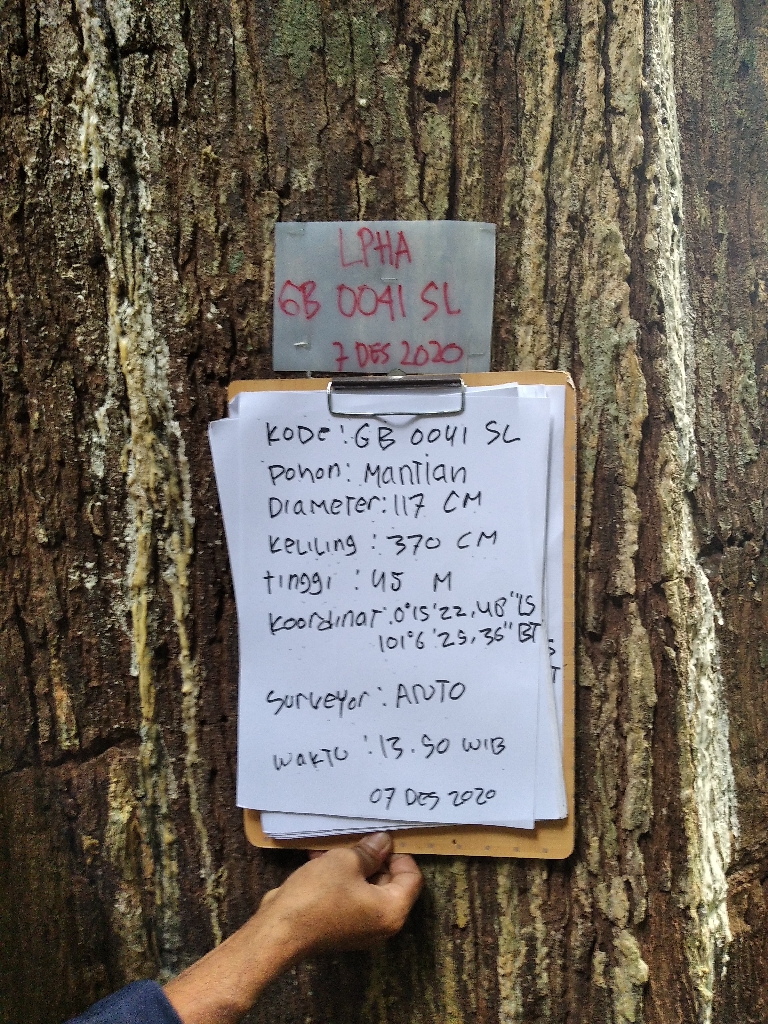 LPHA
GB 0041 SL
7 DES 2020
KODE : GB 0041 SL
Pohon : Mantian
Diameter : 117 CM
Keliling : 370 CM
tinggi : 45 M
Koordinat : 0°15'22,48" LS
101°6'25,36" BT
Surveyor : ANTO
Waktu : 13.50 WIB
07 DES 2020